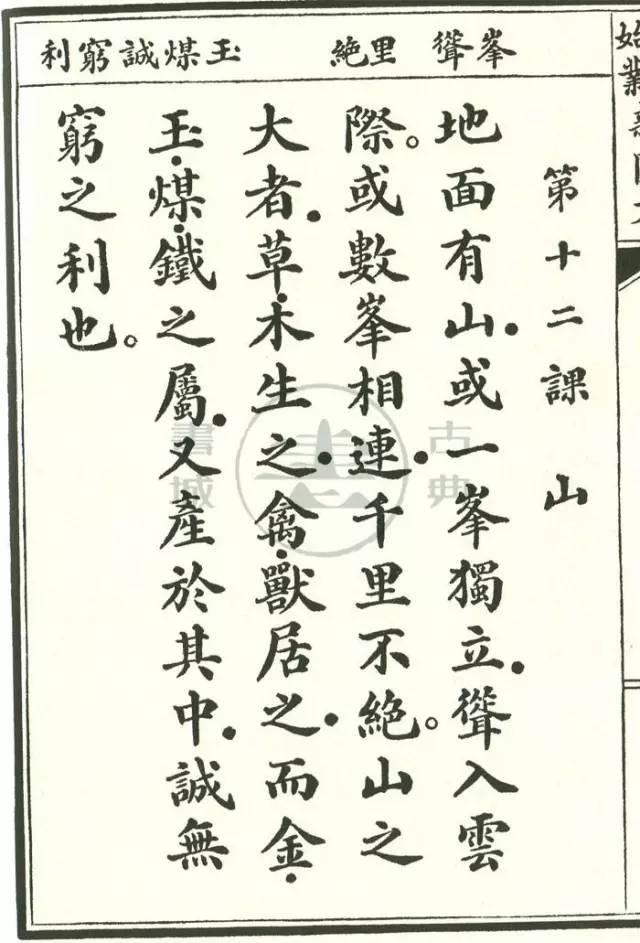 峯聳 里絕 玉煤誠窮利
第十二課 山
地面有山．或一峯獨立．聳入雲
際。或數峯相連．千里不絕。山之
大者．草．木生之．禽．獸居之．而金．
玉．煤．鐵之屬．又產於其中．誠無
窮之利也。
古典書城